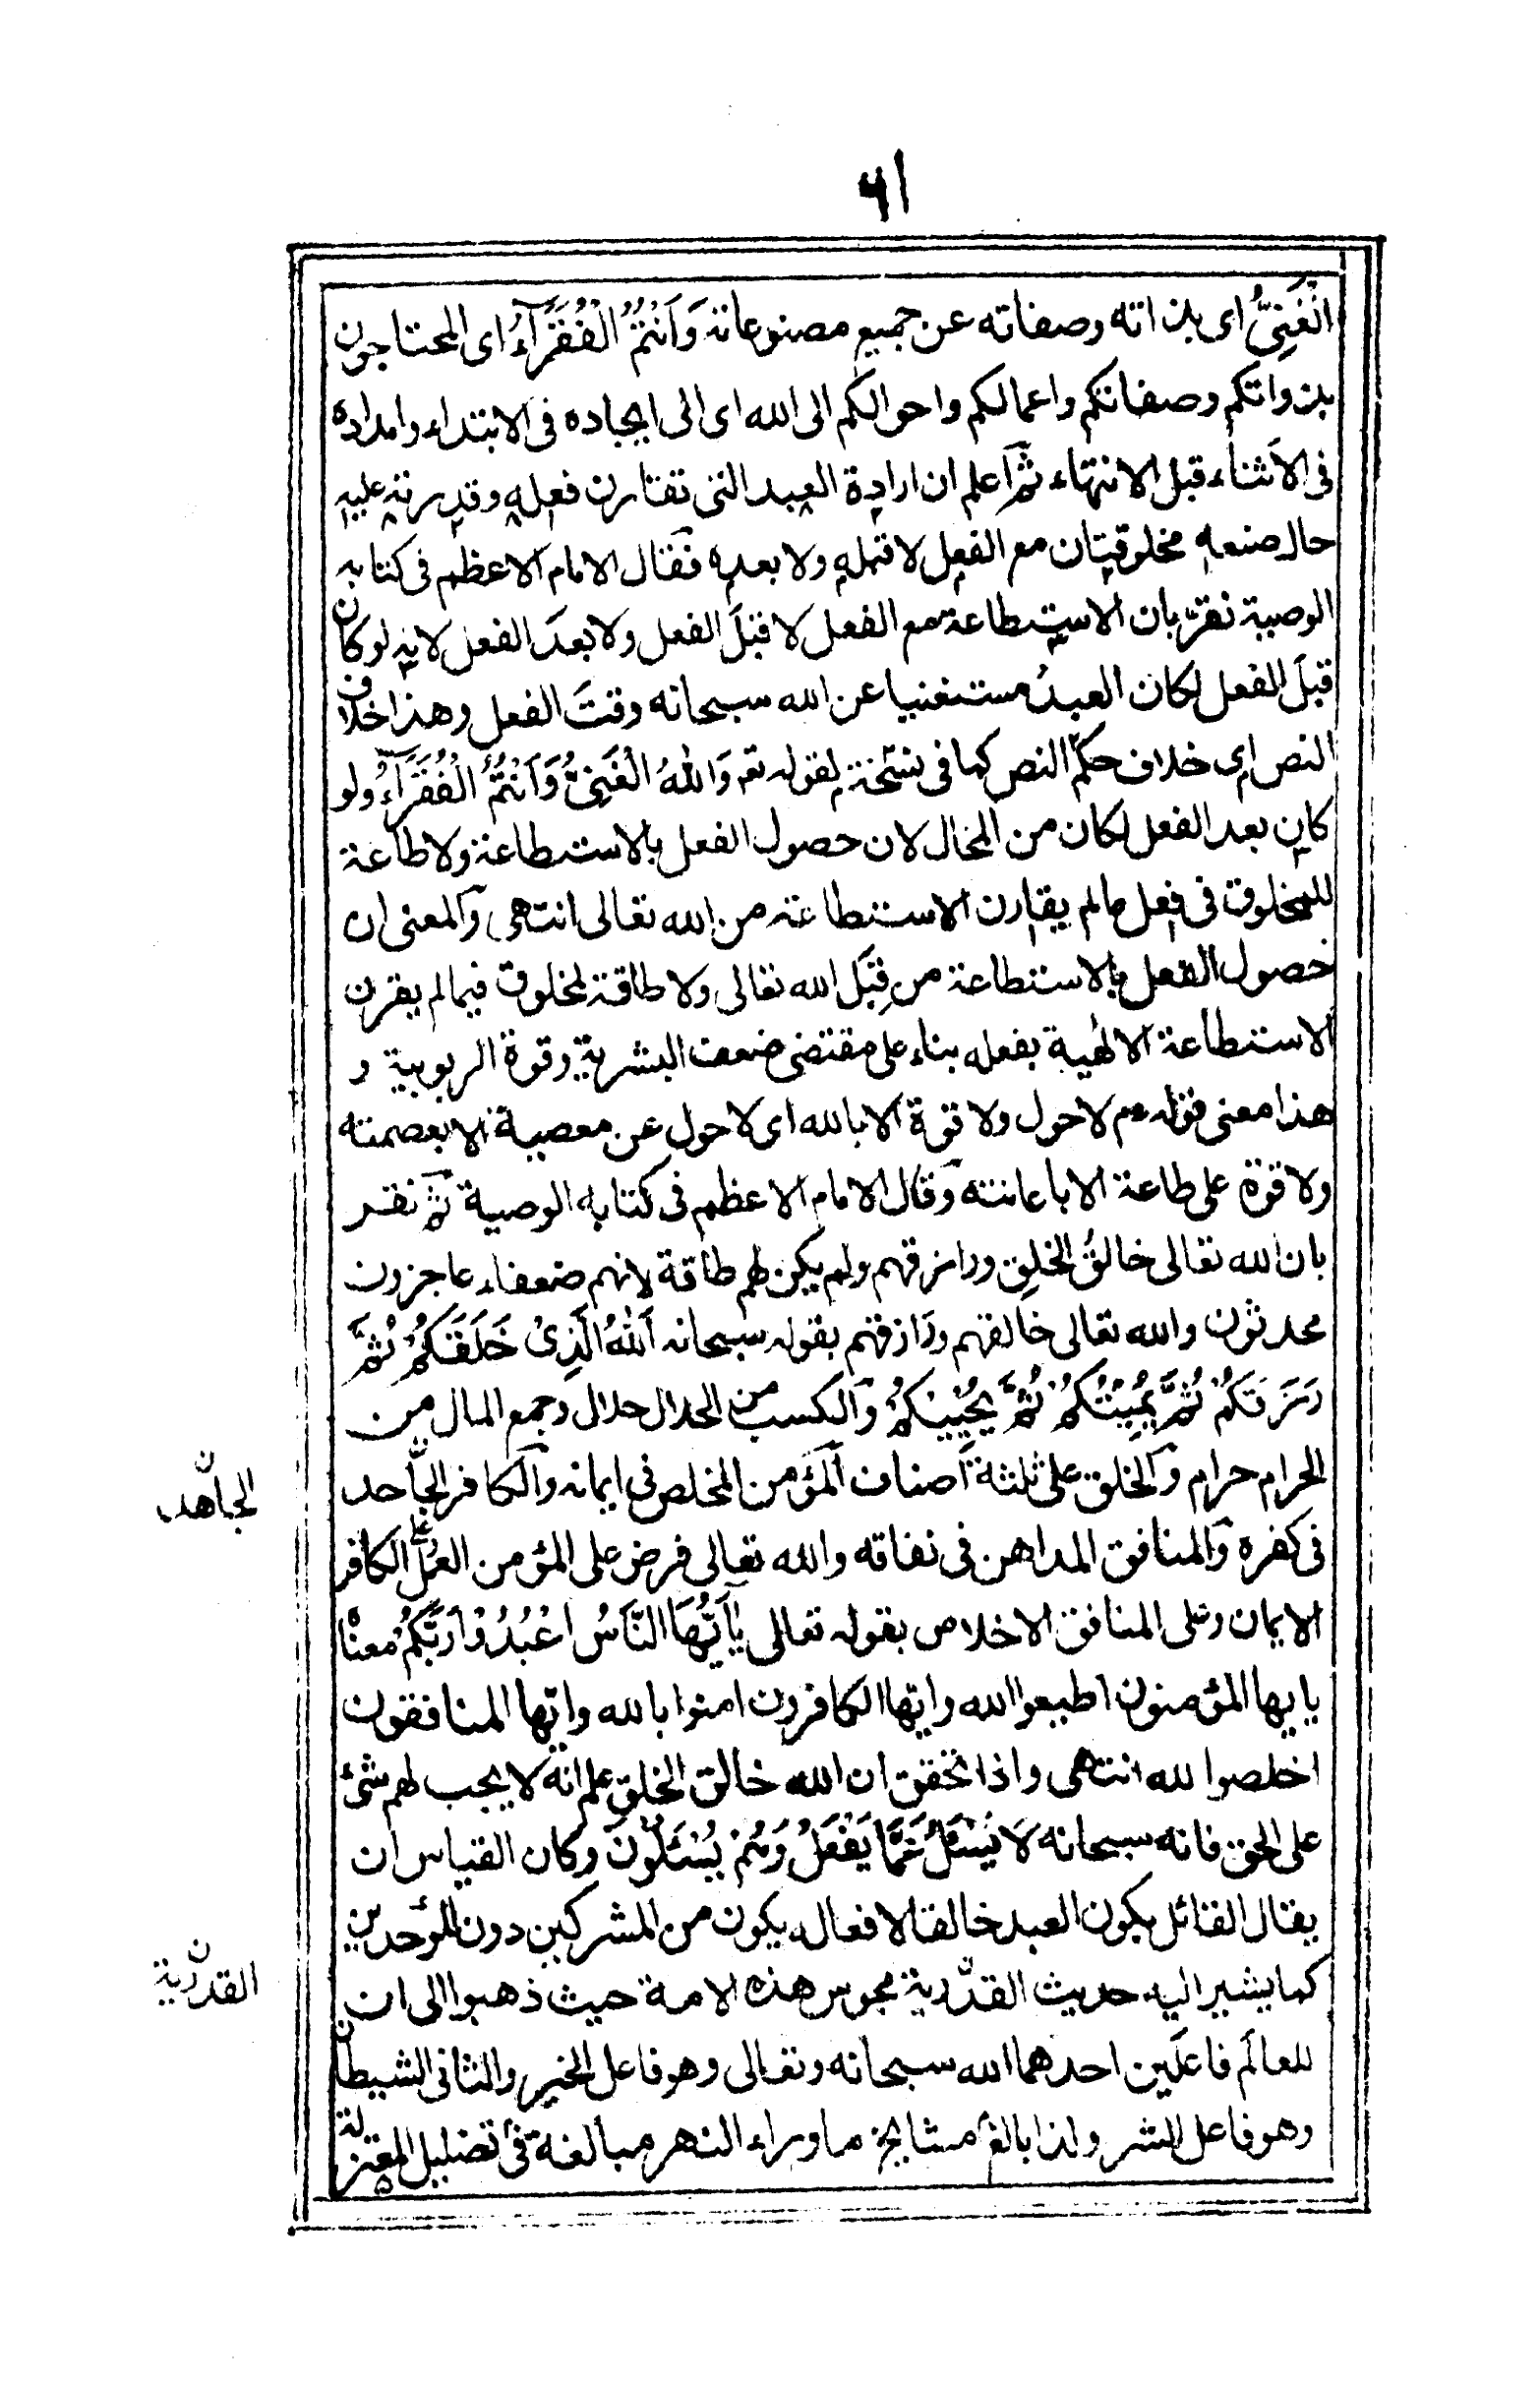 ٦١
الْغَنِيُّ اى بذاته وصفاته عن جميع مصنوعاته وَاَنْتُمُ الْفُقَرَآءُ اى المحتاجون
بذواتكم وصفاتكم واعمالكم واحوالكم الى الله اى الى ايجاده فى الابتداء وامداده
فى الاثناء قبل الانتهاء ثم اعلم ان ارادة العبد التى تقارن فعله وقدرته عليه
حال صنعه مخلوقتان مع الفعل لا قبله ولا بعده فقال الامام الاعظم فى كتابه
الوصية نقر بان الاستطاعة مع الفعل لا قبلَ الفعل ولا بعدَ الفعل لانه لو كان
قبلَ الفعل لكان العبدُ مستغنيا عن الله سبحانه وقتَ الفعل وهذا خلاف
النص اى خلاف حكم النص كما فى نسخة لقوله تعـ وَاللهُ الْغَنِيُّ وَاَنْتُمُ الْفُقَرَآءُ ولو
كان بعد الفعل لكان من المحال لان حصول الفعل بلا استطاعة ولا طاعة
للمخلوق فى فعل مالم يقارن الاستطاعة من الله تعالى انتهى والمعنى ان
حصول الفعل بلا استطاعة من قِبَل الله تعالى ولا طاقة لمخلوق فيما لم يقرن
الاستطاعة الالٰهية بفعله بناء على مقتضى ضعف البشرية وقوة الربوبية و
هذا معنى قوله عم لا حول ولا قوة الا بالله اى لا حول عن معصية الا بعصمته
ولا قوة على طاعة الا باعانته وقال الامام الاعظم فى كتابه الوصية ثم نقر
بان الله تعالى خالقُ الخلقِ ورازقهم ولم يكن لهم طاقة لانهم ضعفاء عاجزون
محدثون والله تعالى خالقهم ورازقهم بقوله سبحانه اَللهُ الَّذِىْ خَلَقَكُمْ ثُمَّ
رَزَقَكُمْ ثُمَّ يُمِيْتُكُمْ ثُمَّ يُحْيِيْكُمْ والكسب من الحلال حلال وجمع المال من
الحرام حرام والخلق على ثلثة اصناف المؤمن المخلص فى ايمانه والكافر الجاحد
الجاهد ن
فى كفره والمنافق المداهن فى نفاقه والله تعالى فرض على المؤمن العمل وعلى الكافر
الايمان وعلى المنافق الاخلاص بقوله تعالى يٰاَيُّهَا النَّاسُ اعْبُدُوْا رَبَّكُمْ معناه
يايها المؤمنون اطيعوا الله وايها الكافرون امنوا بالله وايها المنافقون
اخلصوا لله انتهى واذا تحقق ان الله خالق الخلق علم انه لا يجب لهم شئ
على الحق فانه سبحانه لَا يُسْئَلُ عَمَّا يَفْعَلُ وَهُمْ يُسْئَلُوْنَ وكان القياس ان
يقال القائل بكون العبد خالقا لافعاله يكون من المشركين دون الموحدين
كما يشير اليه حديث القدرية مجوس هذه الامة حيث ذهبوا الى ان
القدرية ن
للعالَم فاعلَين احدهما الله سبحانه وتعالى وهو فاعل الخير والثانى الشيطان
وهو فاعل الشر ولذا بالغ مشايخ ماوراء النهر مبالغة فى تضليل المعتزلة